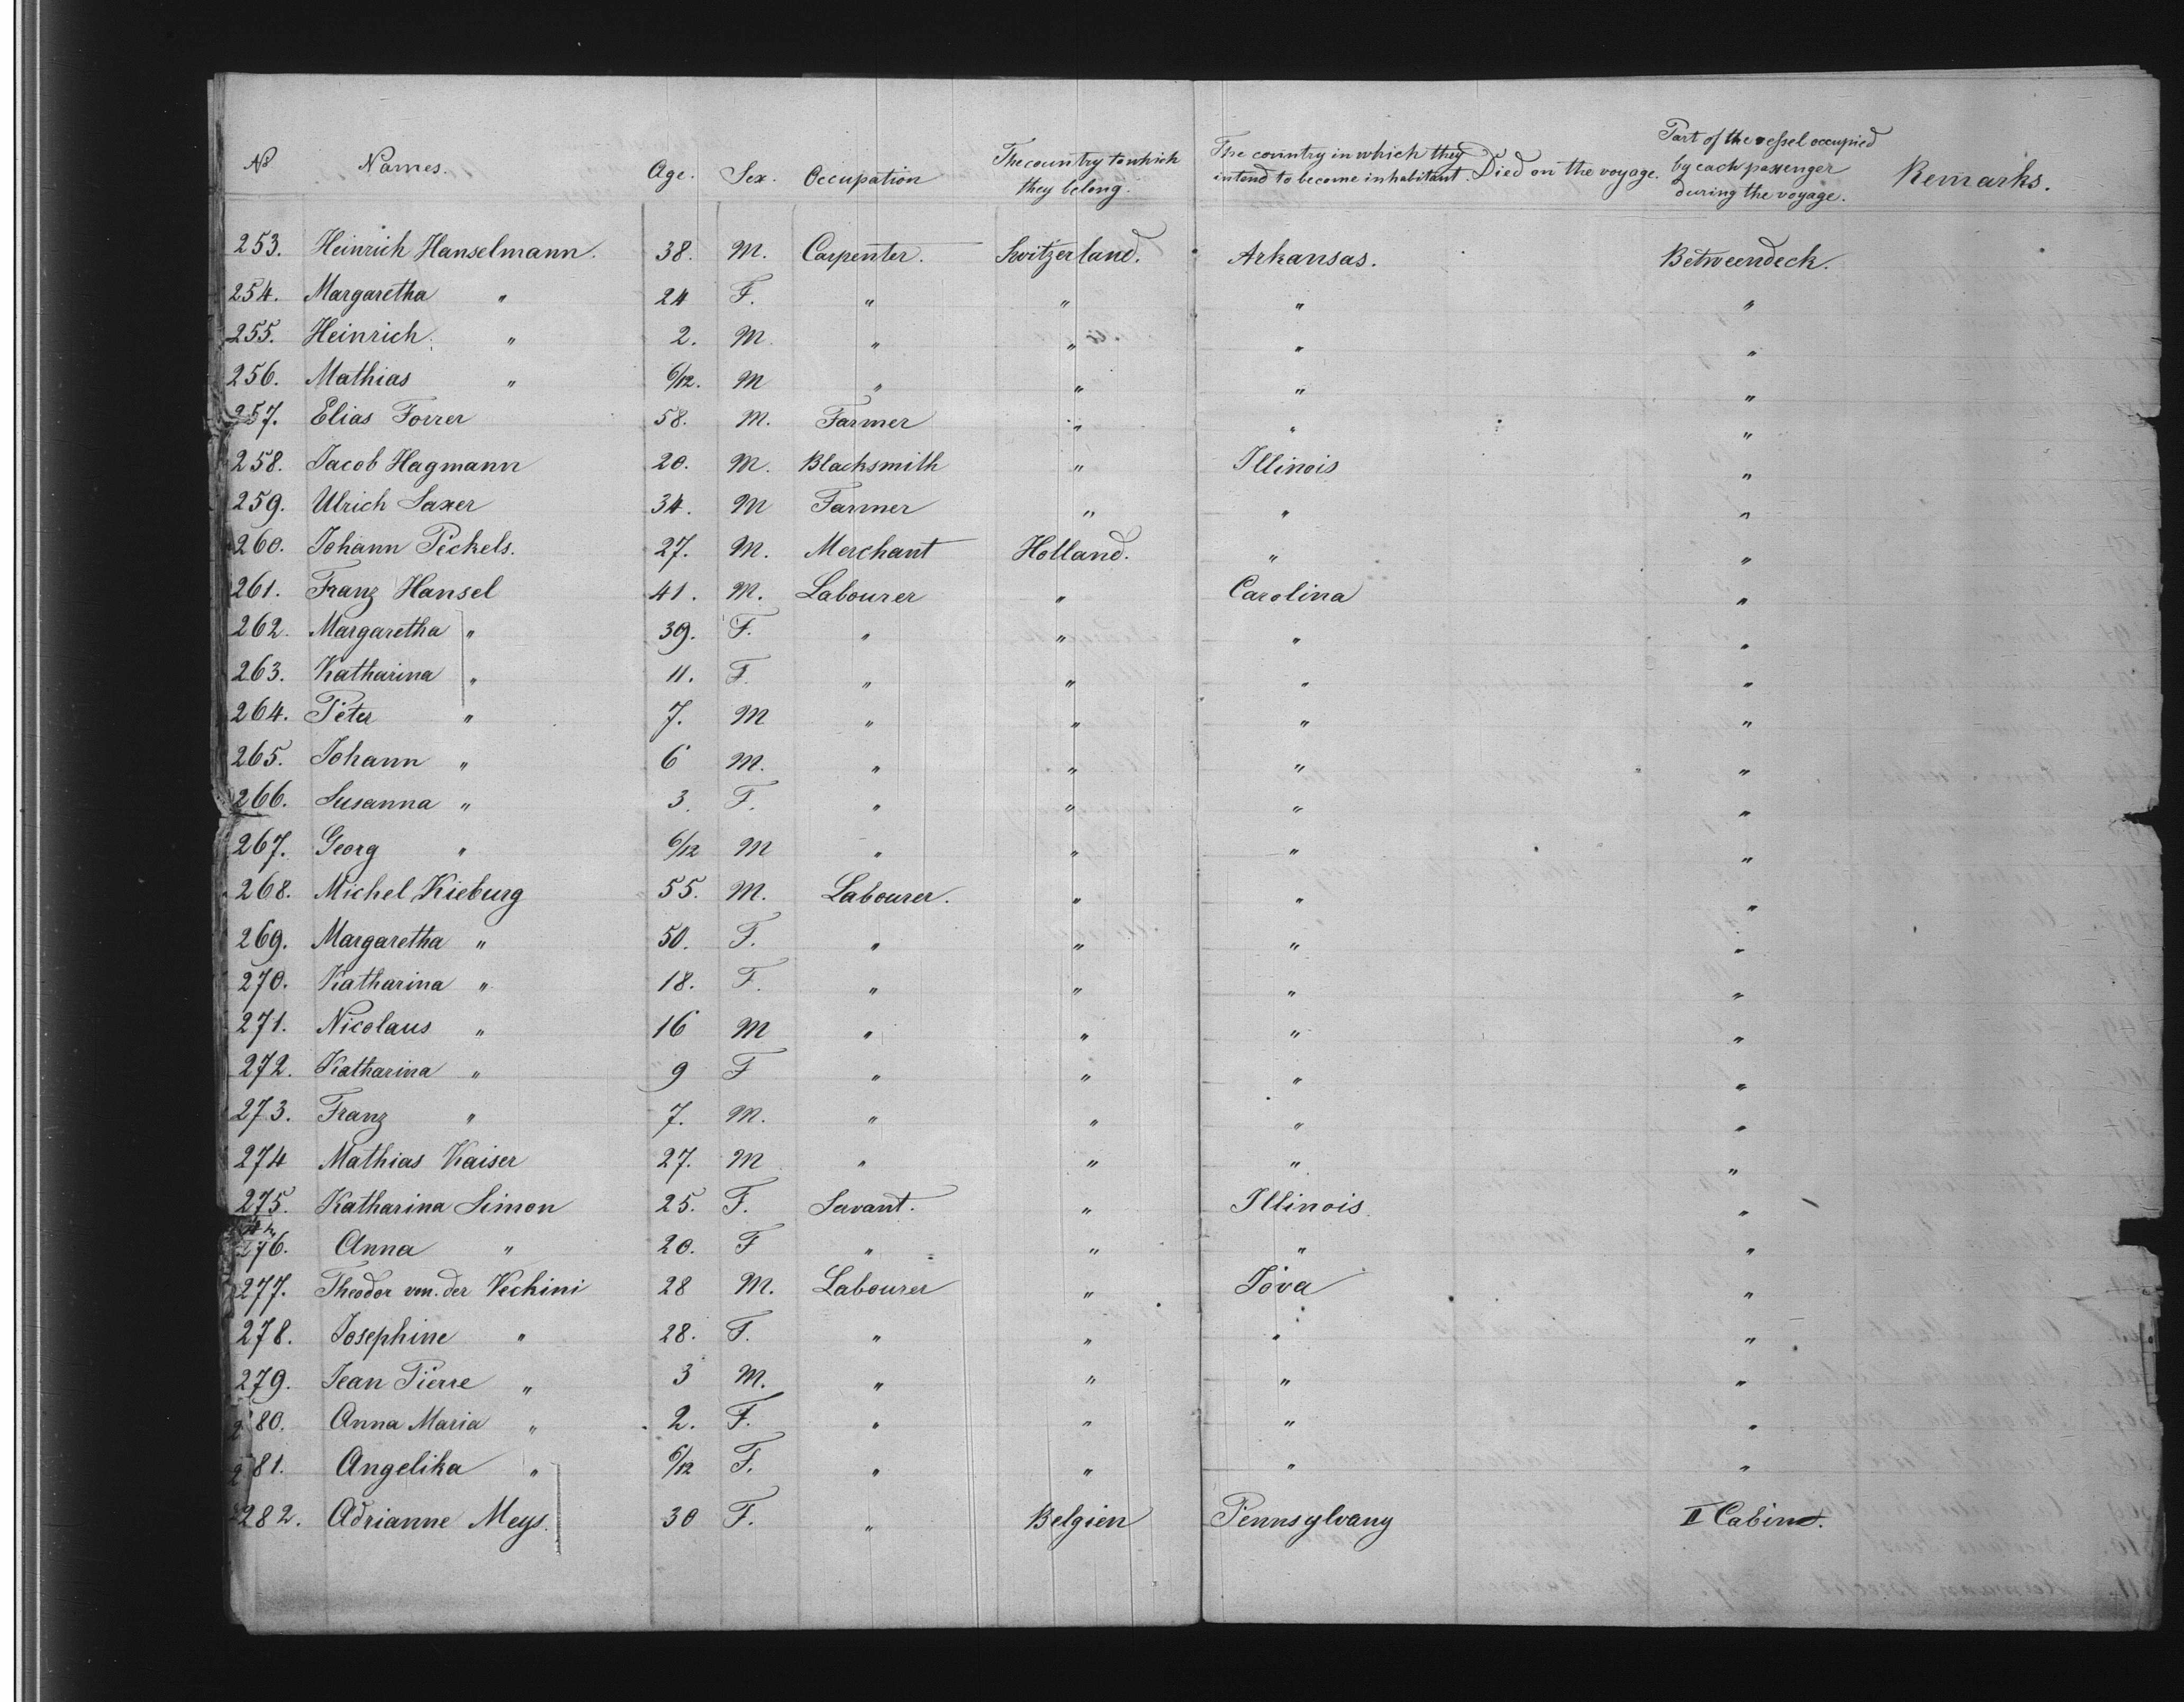 No Names. Age. Sex. Occupation The country to which they belong. The country in which they intend to become inhabitant. Died on the voyage. Part of the vessel occupied by each passenger during the voyage. Remarks.
253. Heinrich Hanselmann. 38. M. Carpenter. Switzerland. Arkansas. Betweendeck.
254. Margaretha " 24 F. " " " "
255. Heinrich " 2. M. " " " "
256. Mathias " 6/12. M " " " "
257. Elias Forrer 58. M. Farmer " " "
258. Jacob Hagmann 20. M. Blacksmith " Illinois "
259. Ulrich Saxer 34. M Farmer " " "
260. Johann Peckels. 27. M. Merchant Holland. " "
261. Franz Hansel 41. M. Labourer " Carolina "
262. Margaretha " 39. F. " " " "
263. Katharina " 11. F. " " " "
264. Peter " 7. M " " " "
265. Johann " 6 M. " " " "
266. Susanna " 3. F. " " " "
267. Georg " 6/12 M " " " "
268. Michel Kieburg 55. M. Labourer. " " "
269. Margaretha " 50. F. " " " "
270. Katharina " 18. F. " " " "
271. Nicolaus " 16 M " " " "
272. Katharina " 9 F " " " "
273. Franz " 7. M. " " " "
274 Mathias Kaiser 27. M " " " "
275. Katharina Simon 25. F. Servant. " Illinois. "
276. Anna " 20. F " " " "
277. Theodor von der Vechini 28 M. Labourer " Jova "
278. Josephine " 28. F. " " " "
279. Jean Pierre " 3 M. " " " "
280. Anna Maria " 2. F. " " " "
281. Angelika " 6/12 F. " " " "
282. Adrianne Meys. 30 F. " Belgien Pennsylvany II Cabin.